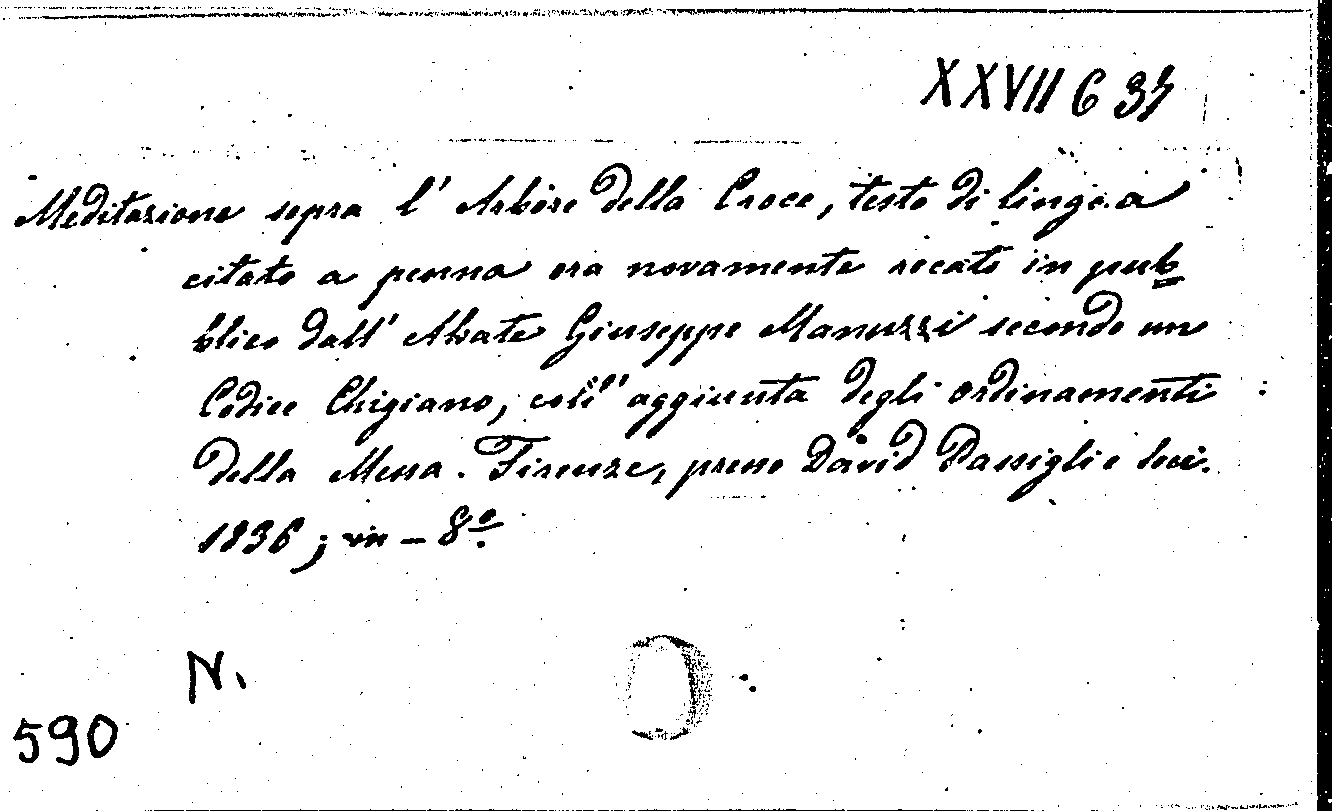 XXVII G 37
Meditazione sopra l' Arbore della Croce, testo di lingua
citato a penna ora novamente recato in pub
blico dall' Abate Giuseppe Manuzzi secondo un
Codice Chigiano, coll' aggiunta degli ordinamenti
della Messa. Firenze, presso David Passigli e soci.
1836; in-8º.
N.
590